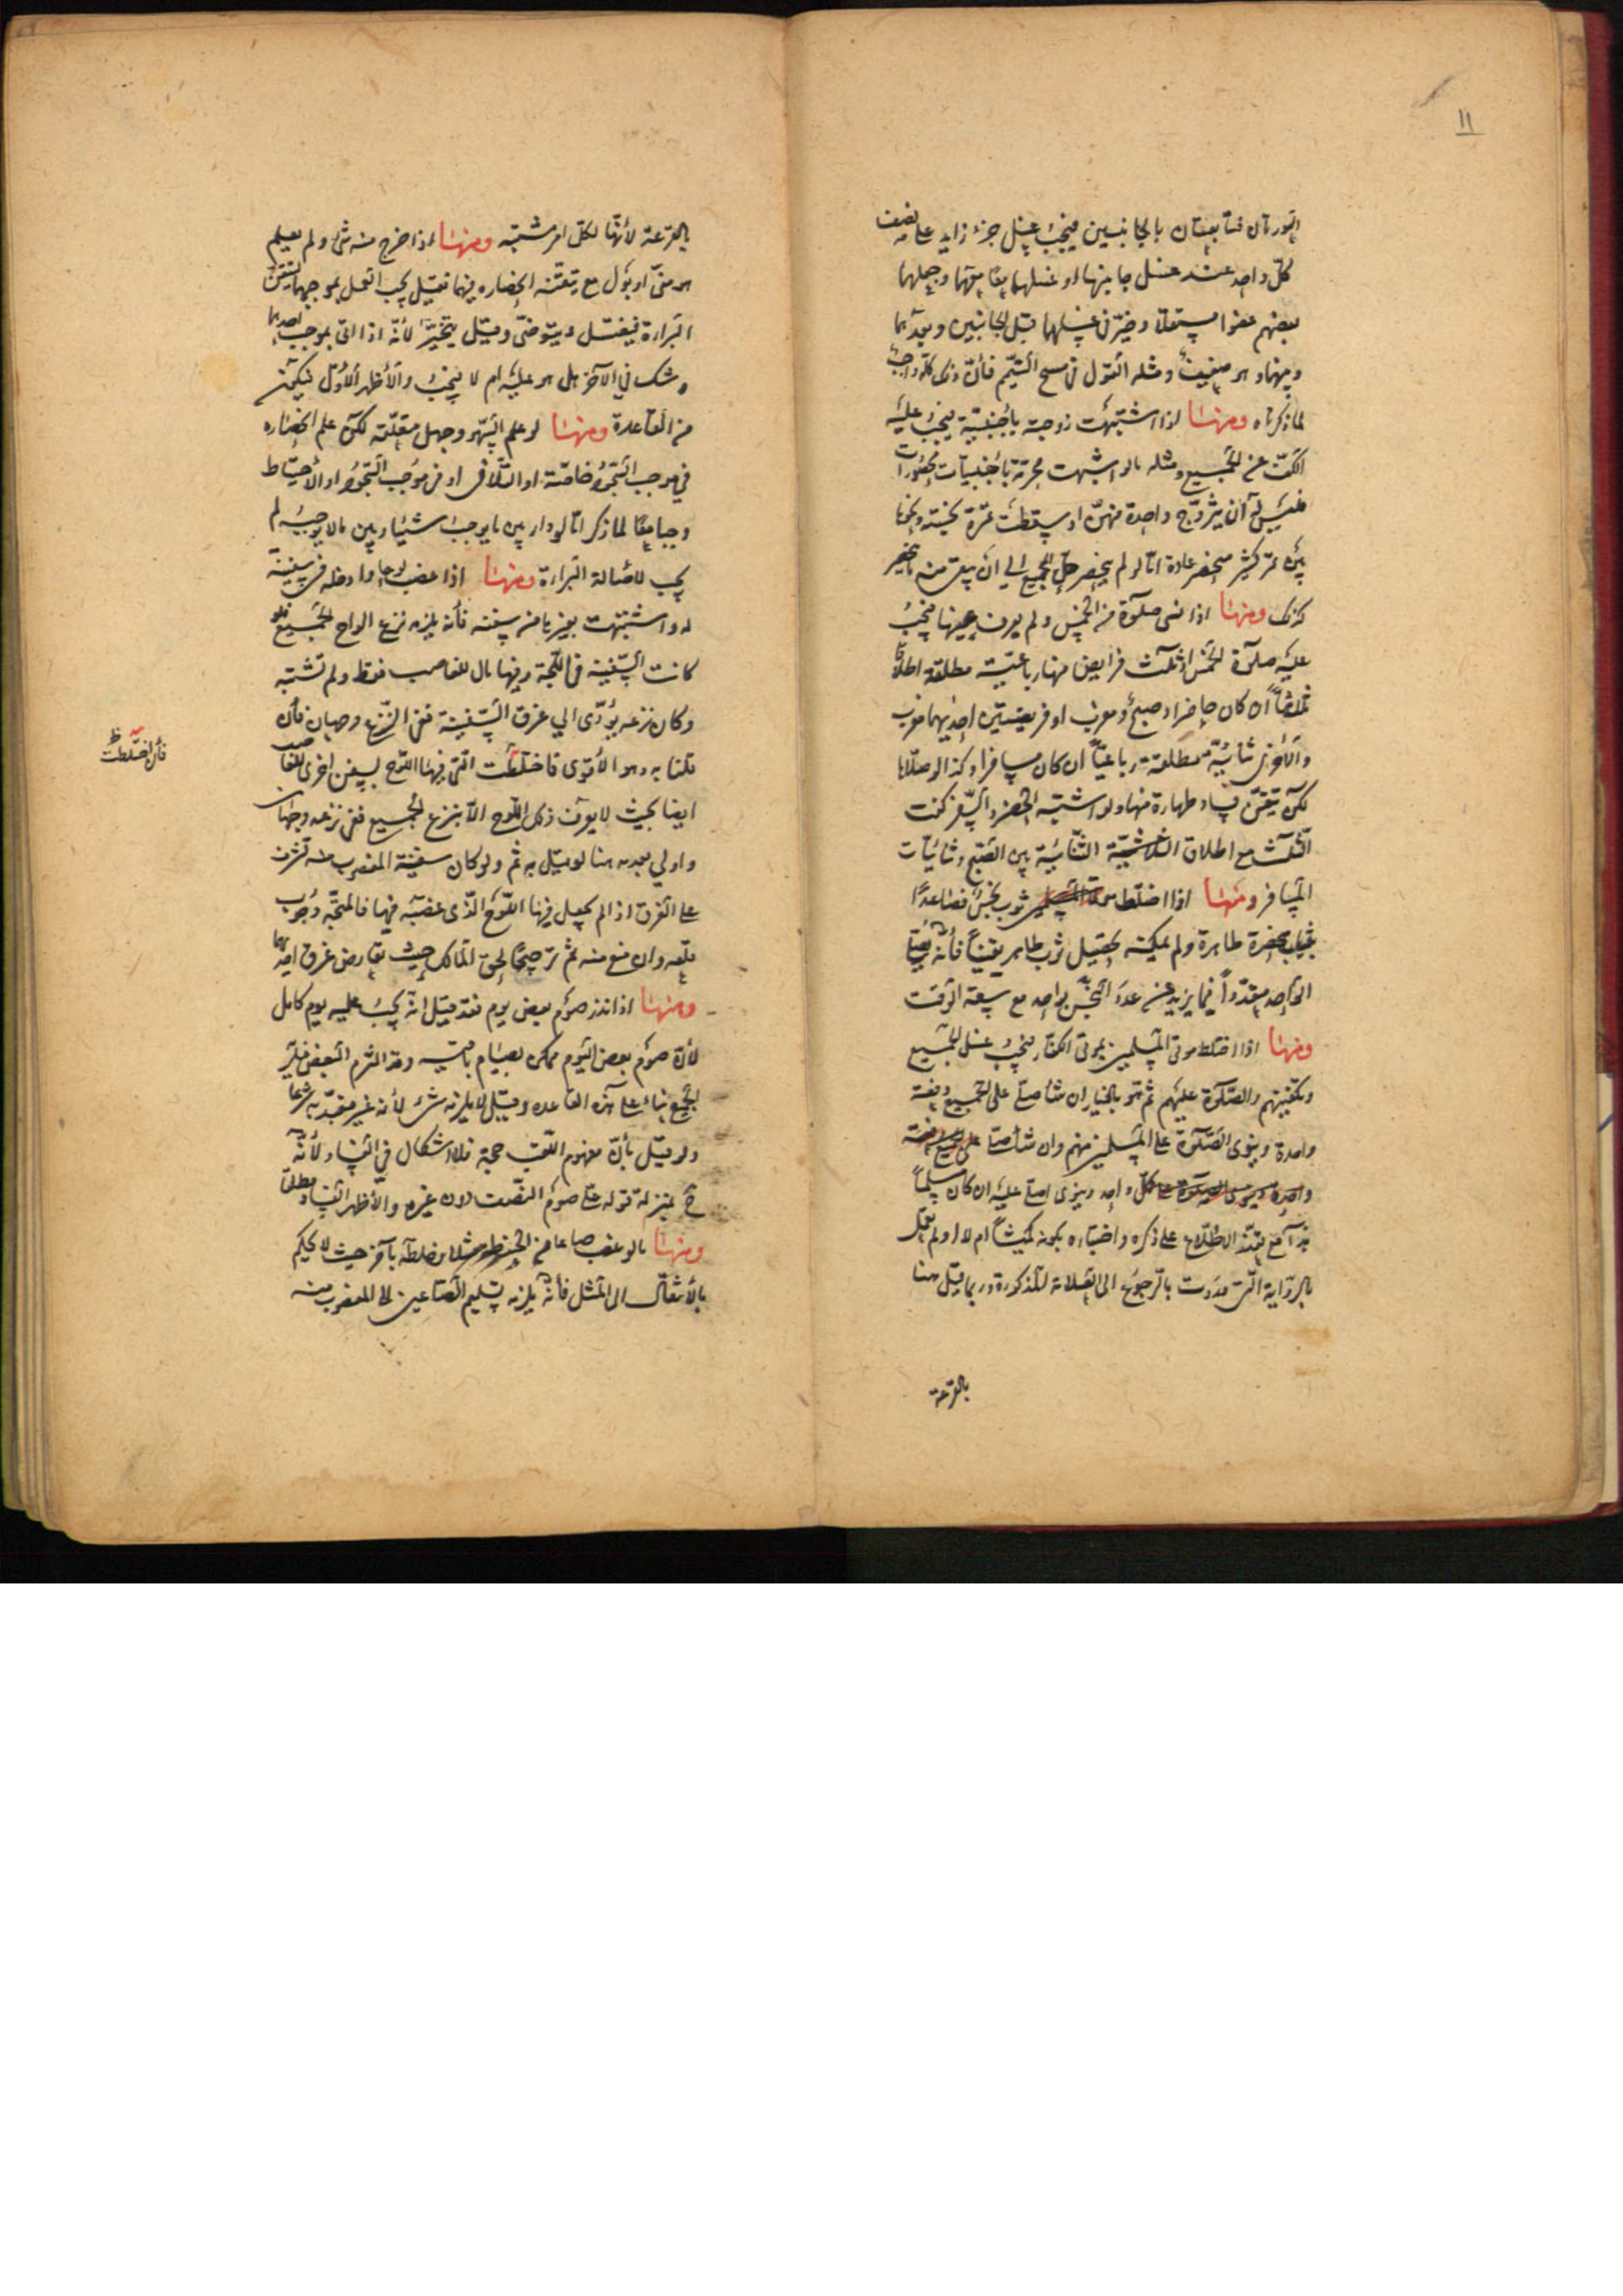 ١١
العورتان فتابعتان بالجانبين فيجب غسل جزء زايد على نصف
كل واحد عند غسل جانبها او غسلهما معا معها وجعلهما
بعضهم عضوا مستقلا وخير في غسلهما قبل الجانبين وبعدهما
وبينهما وهو ضعيف ومثله القول في مسح التيمم فان ذلك كله واجب
لما ذكرناه ومنها اذا اشتبهت زوجته باجنبية فيجب عليه
الكف عن الجميع ومثله ما لو اشتبهت محرمة باجنبيات محصورات
فليس له ان يتزوج واحدة منهن او سقطت تمرة نجسة ونحوها
بين تمر كثير منحصر عادة اما لو لم ينحصر حل الجميع الى ان يبقى منه ما ينحصر
كذلك ومنها اذا نسى صلوة من الخمس ولم يعرف عينها فيجب
عليه صلوة الخمس او ثلث فرايض منها رباعية مطلقة اطلاقا
ثلاثيا ان كان حاضرا وصبح ومغرب او فريضتين احديهما مغرب
والاخرى ثنائية مطلقة رباعيا ان كان مسافرا وكذا لو صلاها
لكن تيقن فساد طهارة منها ولو اشتبه الحضر والسفر كفت
الثلث مع اطلاق الثنائية بين الصبح وثنائيات
المسافر ومنها اذا اختلط ثوب نجس فصاعدا
بثياب طاهرة ولم يمكنه تحصيل ثوب طاهر يقينا فانه يصلي
الواحد متعددا فيما يزيد عن عدد النجس بواحد مع سعة الوقت
ومنها اذا اختلط موتى المسلمين بموتى الكفار فيجب غسل الجميع
وتكفينهم والصلوة عليهم ثم هو بالخيار ان شاء صلى على الجميع دفعة
واحدة وينوى الصلوة على المسلمين منهم وان شاء صلى على
كل واحد وينوى اصلى عليه ان كان مسلما
هذا مع تعذر الاطلاع على ذكره واختباره بكونه كميشا ام لا او لم نقل
بالرواية التي وردت بالرجوع الى العلامة المذكورة وربما قيل هنا
بالقرعة
بالقرعة لانها لكل امر مشتبه ومنها اذا خرج منه شئ ولم يعلم
هو منى او بول مع تيقنه انحصاره فيهما فقيل يجب العمل بموجبهما ليتيقن
البراءة فيغتسل ويتوضى وقيل يتخير لانه اذا اتى بموجب احدهما
وشك في الآخر هل هو عليه ام لا فيجب والاظهر الاول
من القاعدة ومنها لو علم السهو وجهل متعلقه لكن علم انحصاره
في موجب السجود خاصة او التلافى او في موجب السجود او الاحتياط
وجبا معا لما ذكر اما لو دار بين ما يوجب شيئا وبين ما لا يوجبه لم
يجب لاصالة البراءة ومنها اذا غصب لوحا وادخله في سفينة
له واشتبهت بغيرها من سفنه فانه يلزمه نزع الواح الجميع فلو
كانت السفينة في اللجة وفيها مال للغاصب فقط ولم تشتبه
وكان نزعه يؤدى الى غرق السفينة ففى النزع وجهان فان
قلنا به وهو الاقوى فاختلطت التى فيها اللوح بسفن اخرى للغاصب
ايضا بحيث لا يعرف ذلك اللوح الا بنزع الجميع ففى نزعه وجهان
واولى بعدمه هنا لو قيل به ثم ولو كان سفينة المغصوب منه تشرف
على الغرق اذا لم يجعل فيها اللوح الذى غصبه فيها فالمتجه وجوب
قلعه وان منع منه ثم ترجيحا لحق المالك حيث تعارض غرق احدهما
ومنها اذا نذر صوم بعض يوم فقد قيل انه يجب عليه يوم كامل
لان صوم بعض اليوم ممكن بصيام باقيه وقد التزم البعض فيلزم
الجميع بناء على هذه القاعده وقيل لا يلزمه شئ لانه غير متعبد به شرعا
ولو قيل بان مفهوم اللقب حجة فلا اشكال في الفساد لانه
ح بمنزلة قوله على صوم النصف دون غيره والاظهر الفساد مطلقا
ومنها ما لو غصب صاعا من الحنطة مثلا وخلطه بآخر حيث لا يحكم
بالانتقال الى المثل فانه يلزمه تسليم الصاعين الى المغصوب منه
فان اختلطت ظ